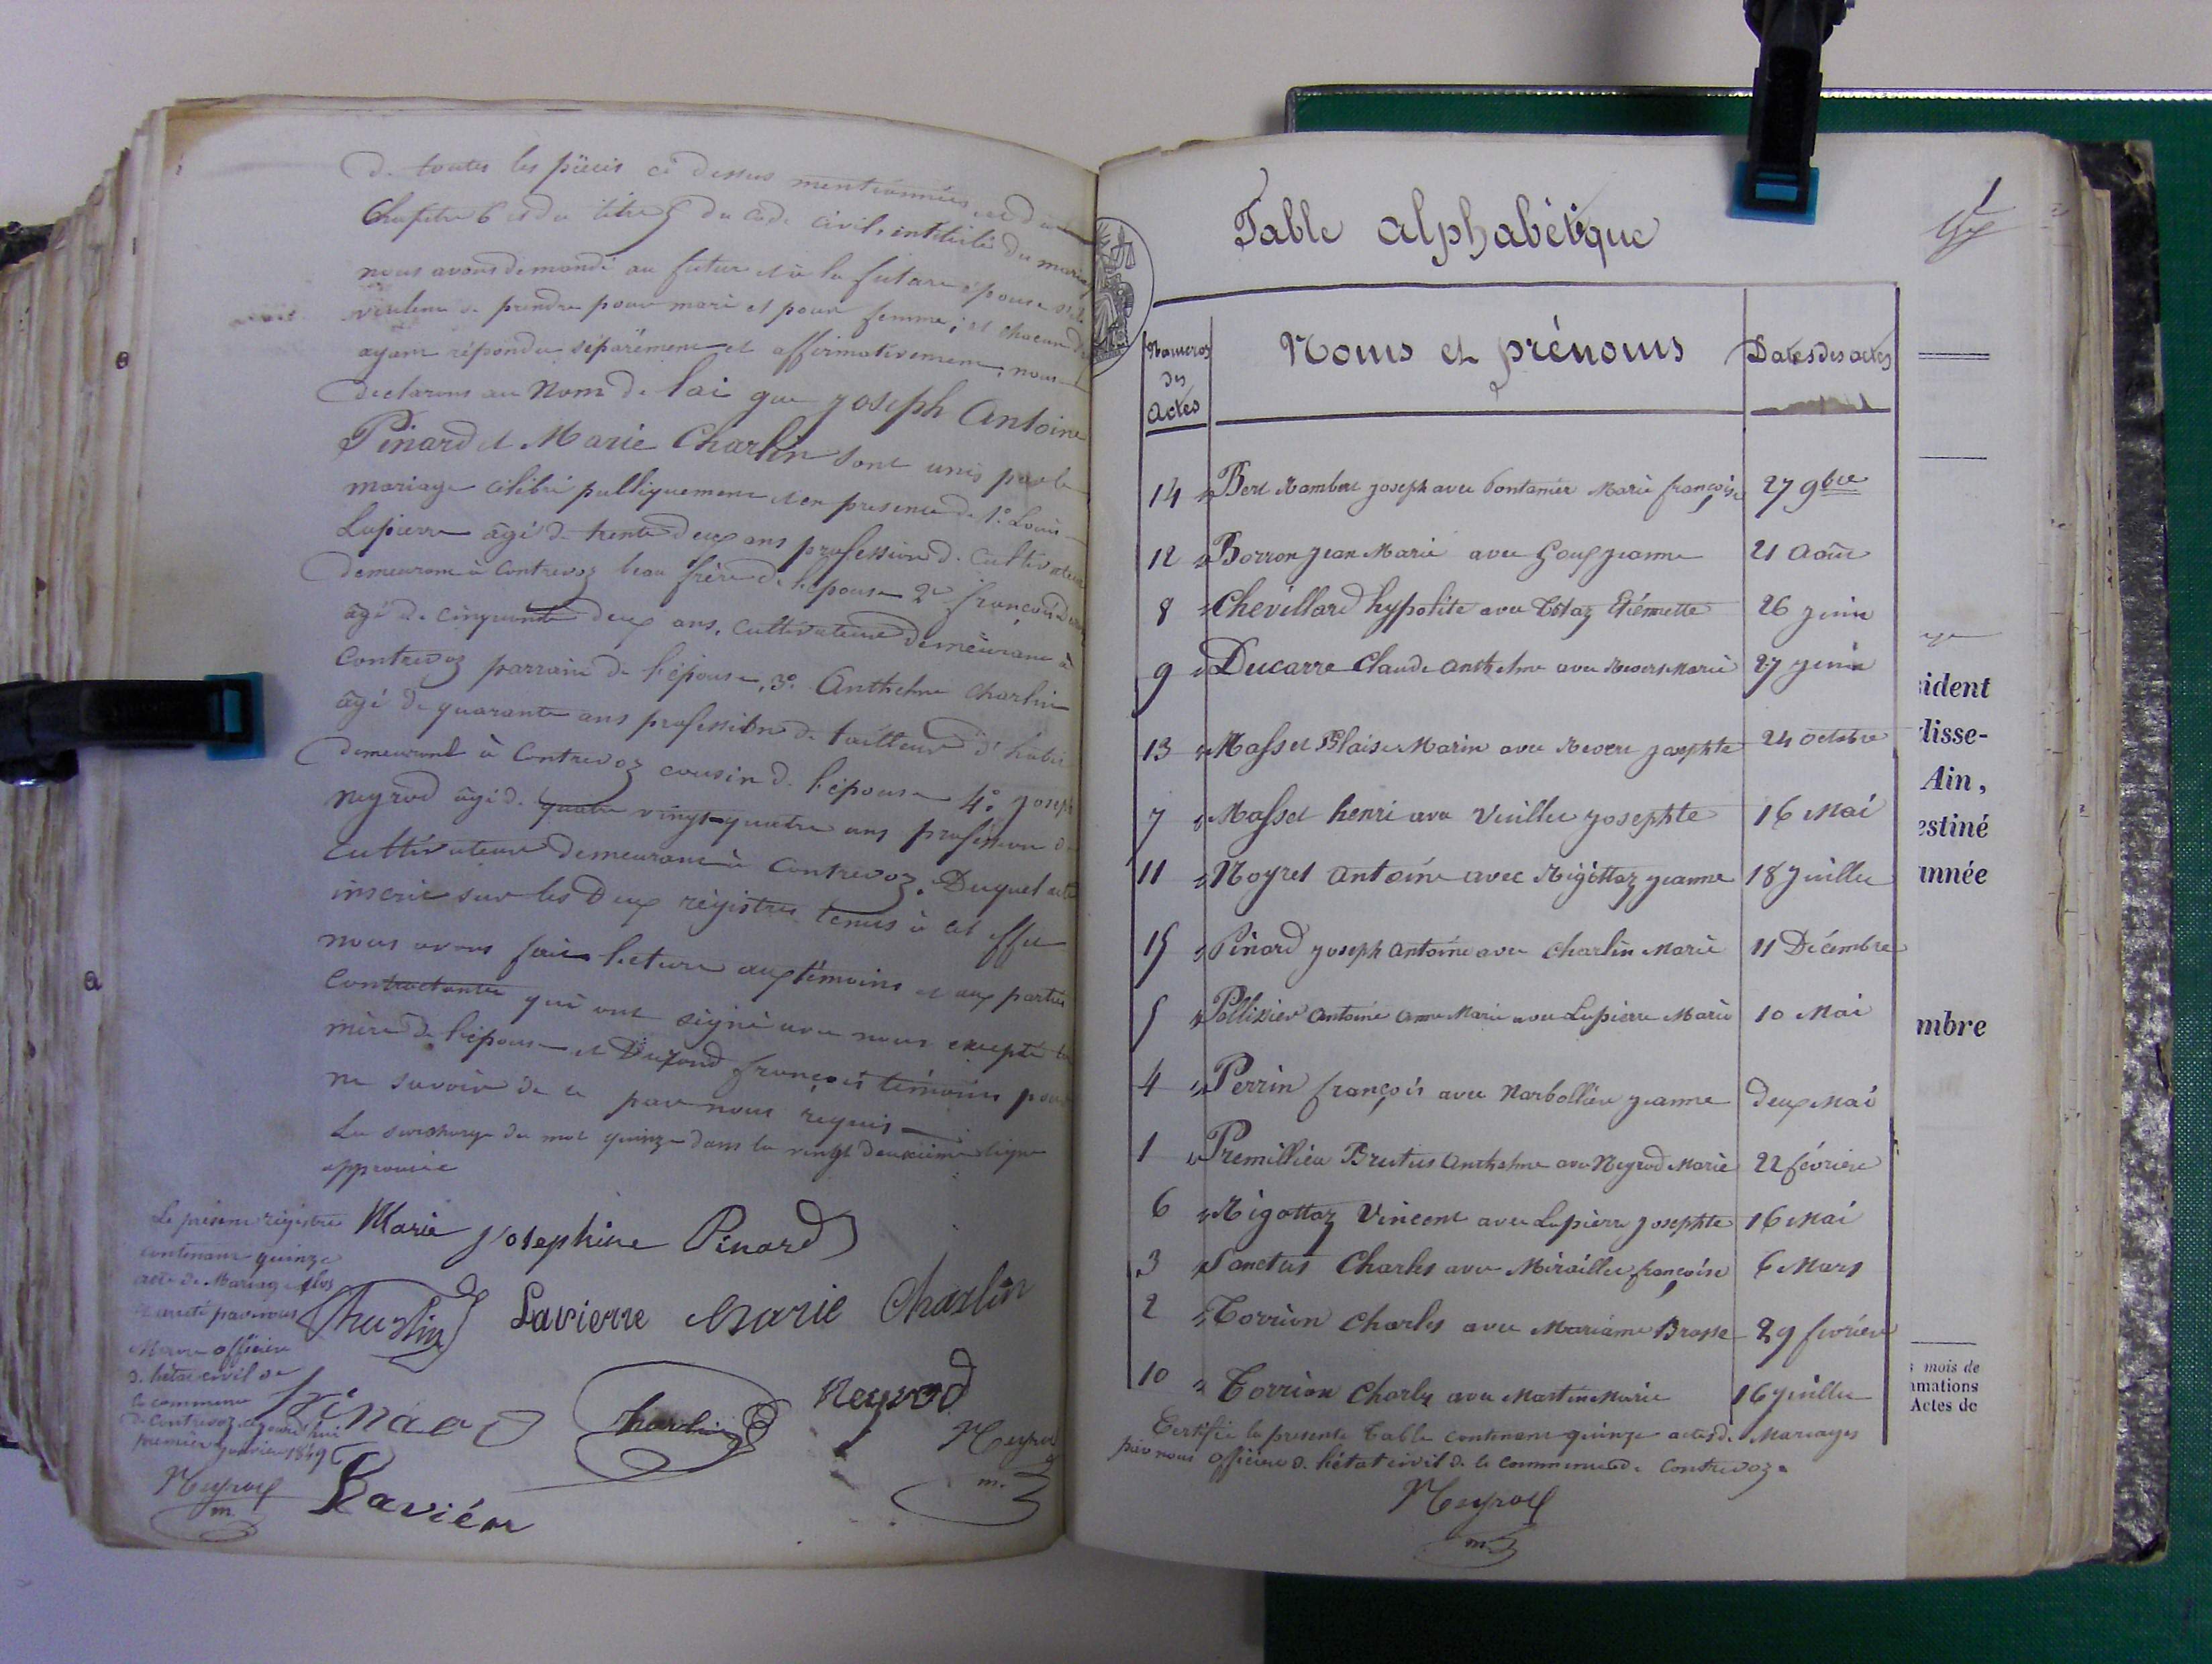 de toutes les pièces ci dessus mentionnées, et du
Chapitre 6 et du titre 5 du Code Civil, intitulé du mariage
nous avons demandé au futur et à la future épouse s'ils
veulent se prendre pour mari et pour femme; et chacun d'eux
ayant répondu séparément et affirmativement, nous
declarons au Nom de lai que joseph Antoine
Pinard et Marie Charlin sont unis par le
mariage célébré publiquement et en presence de 1° Louis
Lapierre âgé de trente deux ans profession de cultivateur
demeurant à Contrevoz beau frère de l'épouse 2° françois
âgé de cinquante deux ans, cultivateur demeurant à
Contrevoz parrain de l'épouse, 3° Anthelme Charlin
âgé de quarante ans profession de tailleur d'habit
demeurant à Contrevoz cousin de l'épouse 4° joseph
neyrod âgé de quatre vingt-quatre ans profession de
cultivateur demeurant à Contrevoz. Duquel acte
inscrit sur les Deux régistres tenus à cet effet
nous avons fait lecture aux témoins et aux parties
Contractantes qui ont signé avec nous excepté la
mère de l'épouse et françois témoins pour
ne savoir de ce par nous requis
La surcharge du mot quinze dans la vingt deuxième ligne
approuvée
Marie josephine Pinard
Charlin Lapierre Marie Charlin
Pinard Charlin Neyrod
Neyrod
m.
Le présent régistre
contenant quinze
acte de Mariage clos
et arreté par nous
Maire officier
de l'état civil de
la commune
de Contrevoz aujourd'hui
premier janvier 1849
Neyrod
m.
Table alphabétique
Numeros des Actes Noms et prénoms Dates des actes
14 Bert Rambert joseph avec fontanier Marie françoise 27 9bre
12 Borron jean Marie avec Goux jeanne 21 Août
8 Chevillard hypolite avec Etiennette 26 juin
9 Ducarre Claude anthelme avec Revert Marie 27 juin
13 Masset Blaise Marin avec Revert josephte 24 octobre
7 Masset henri avec Vuillet josephte 16 Mai
11 Noyret Antoine avec Rigottaz jeanne 18 juillet
15 Pinard joseph antoine avec Charlin Marie 11 Décembre
5 Pellissier Antoine anne Marie avec Lapierre Marie 10 Mai
4 Perrin françois avec Narbollier jeanne deux Mai
1 Premillieu Brutus Anthelme avec Neyrod Marie 22 février
6 Rigottaz Vincent avec Lapierre josephte 16 Mai
3 Sanctus Charles avec Miraillet françoise 6 Mars
2 Torrion Charles avec Marianne Brasse 29 fevrier
10 Torrion Charles avec Martin Marie 16 juillet
Certifié la presente Table contenant quinze actes de Mariages
par nous officier de l'état civil de la commune de Contrevoz
Neyrod
m.
sident
disse-
Ain,
estiné
année
mbre
mois de
amations
Actes de